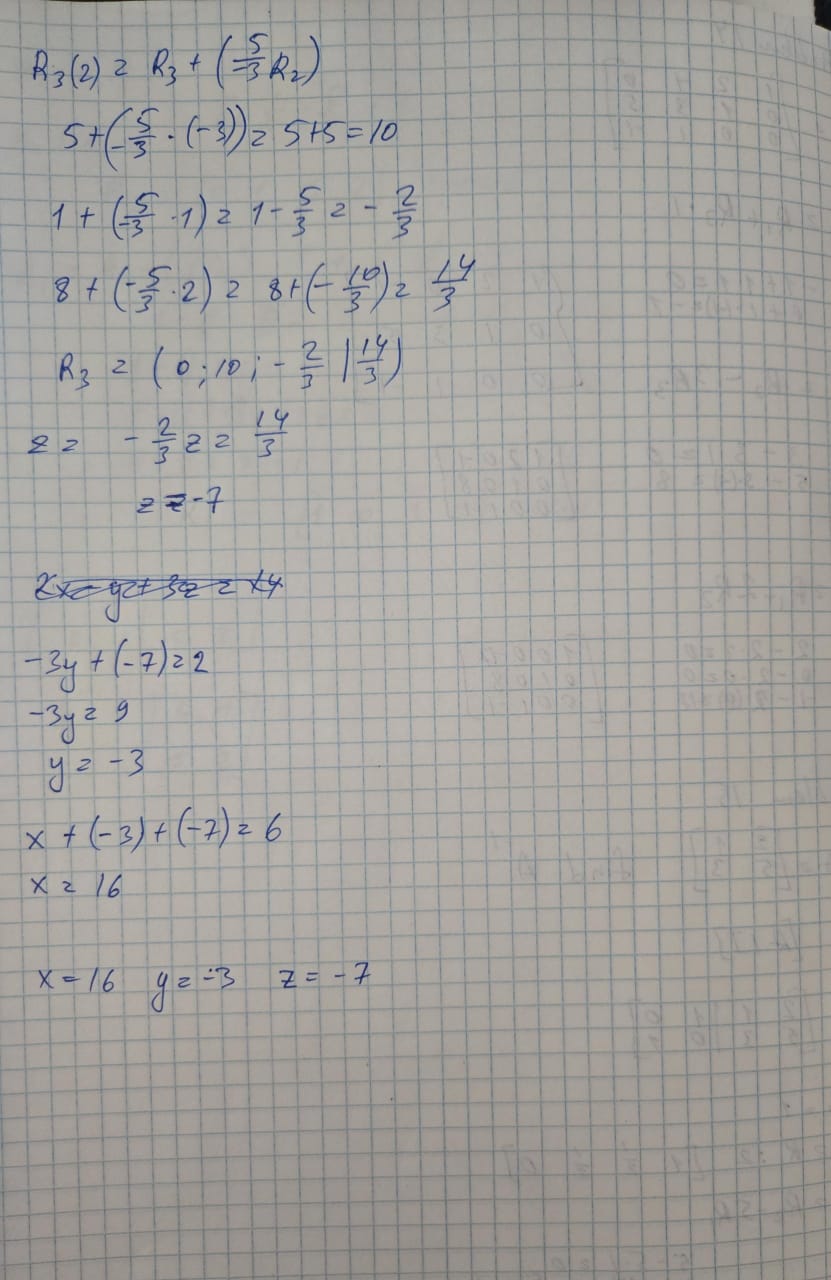 R₃(2) = R₃ + (5/-3 R₂)
5+(-5/3 · (-3)) = 5+5=10
1 + (5/-3 · 1) = 1 - 5/3 = - 2/3
8 + (-5/3 · 2) = 8+(- 10/3) = 14/3
R₃ = ( 0 ; 10 ; - 2/3 | 14/3 )
z = - 2/3 z = 14/3
z = -7
2x - y + 3z = 14
-3y + (-7) = 2
-3y = 9
y = -3
x + (-3) + (-7) = 6
x = 16
x = 16 y = -3 z = -7